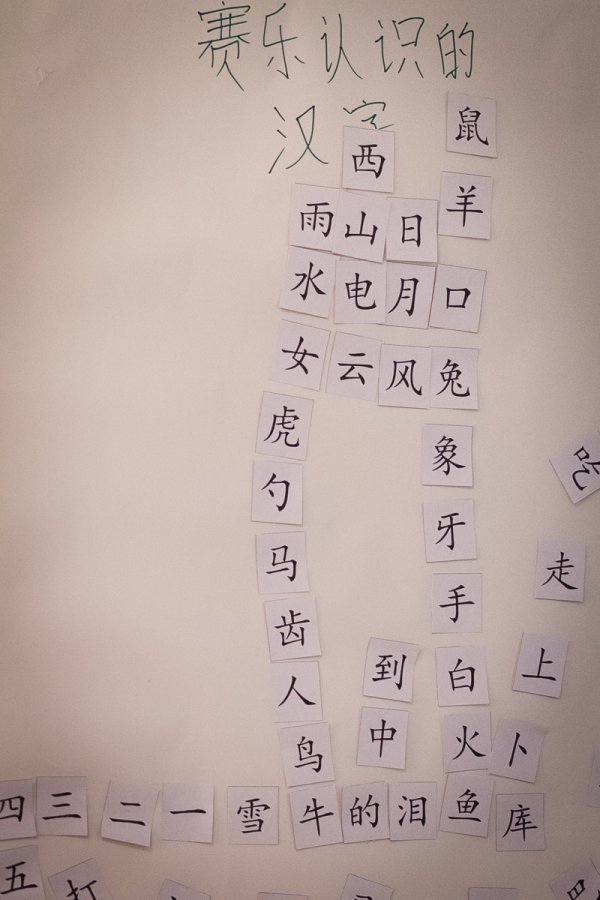 赛乐认识的
汉字
鼠
西
羊
雨山日
水电月口
女云风兔
虎
象
吃
勺
牙
马
走
手
齿
到
白
上
人
中
火
卜
鸟
四三二一雪牛的泪鱼库
五打